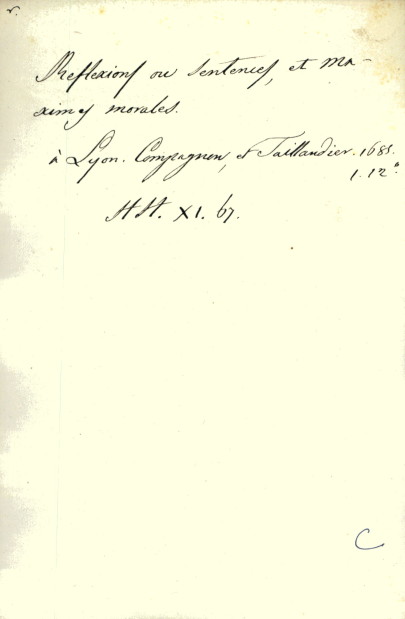 r.
Reflexions ou Sentences, et ma-
ximes morales.
à Lyon. Compagnon, et Taillandier. 1685.
1. 12°.
HH. XI. 67.
C